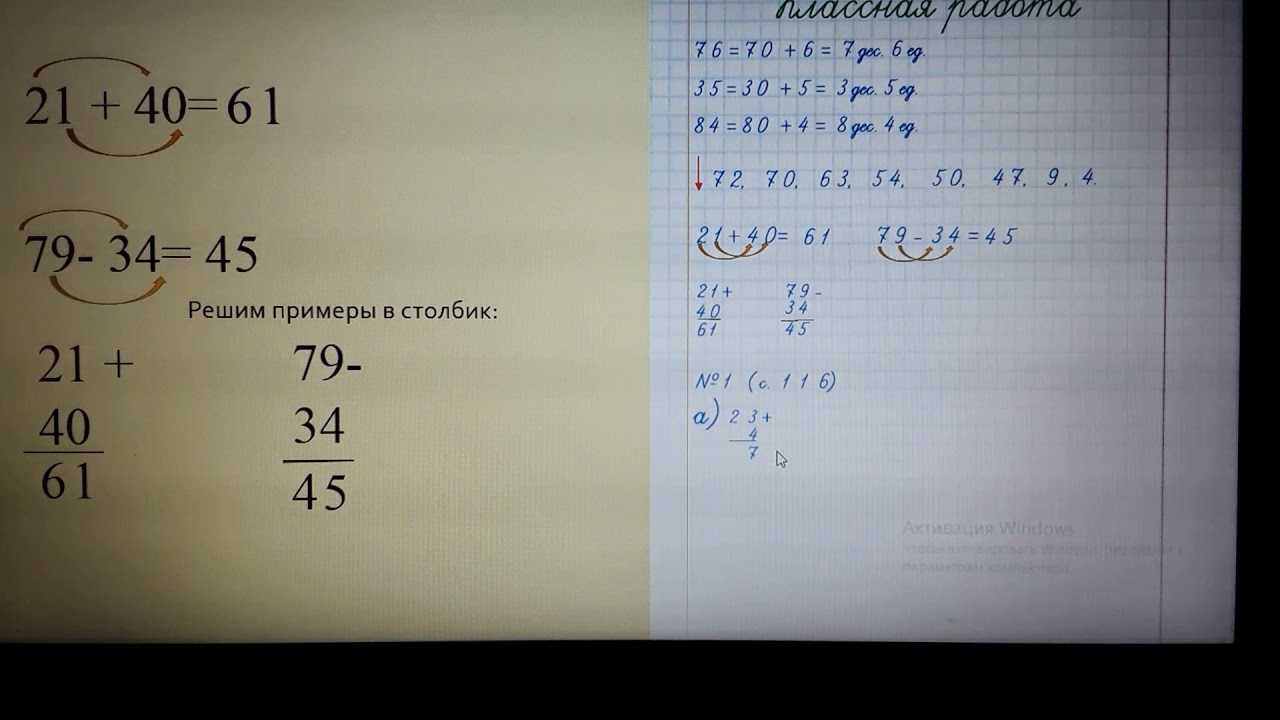 21 + 40= 61
79- 34= 45
Решим примеры в столбик:
21 + 79-
40 34
61 45
классная работа
76 = 70 + 6 = 7 дес. 6 ед.
35 = 30 + 5 = 3 дес. 5 ед.
84 = 80 + 4 = 8 дес. 4 ед.
72, 70, 63, 54, 50, 47, 9, 4.
21 + 40 = 61 79 - 34 = 45
21 + 79 -
40 34
61 45
№1 (с. 116)
а) 23 +
4
7
Активация Windows
Чтобы активировать Windows, перейдите к
параметрам компьютера.